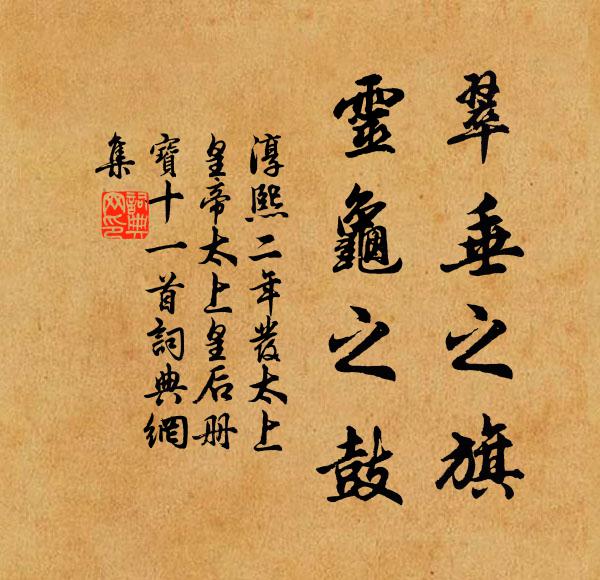 翠垂之旗
靈龜之鼓
淳熙二年發太上
皇帝太上皇后册
寶十一首詞典網
集